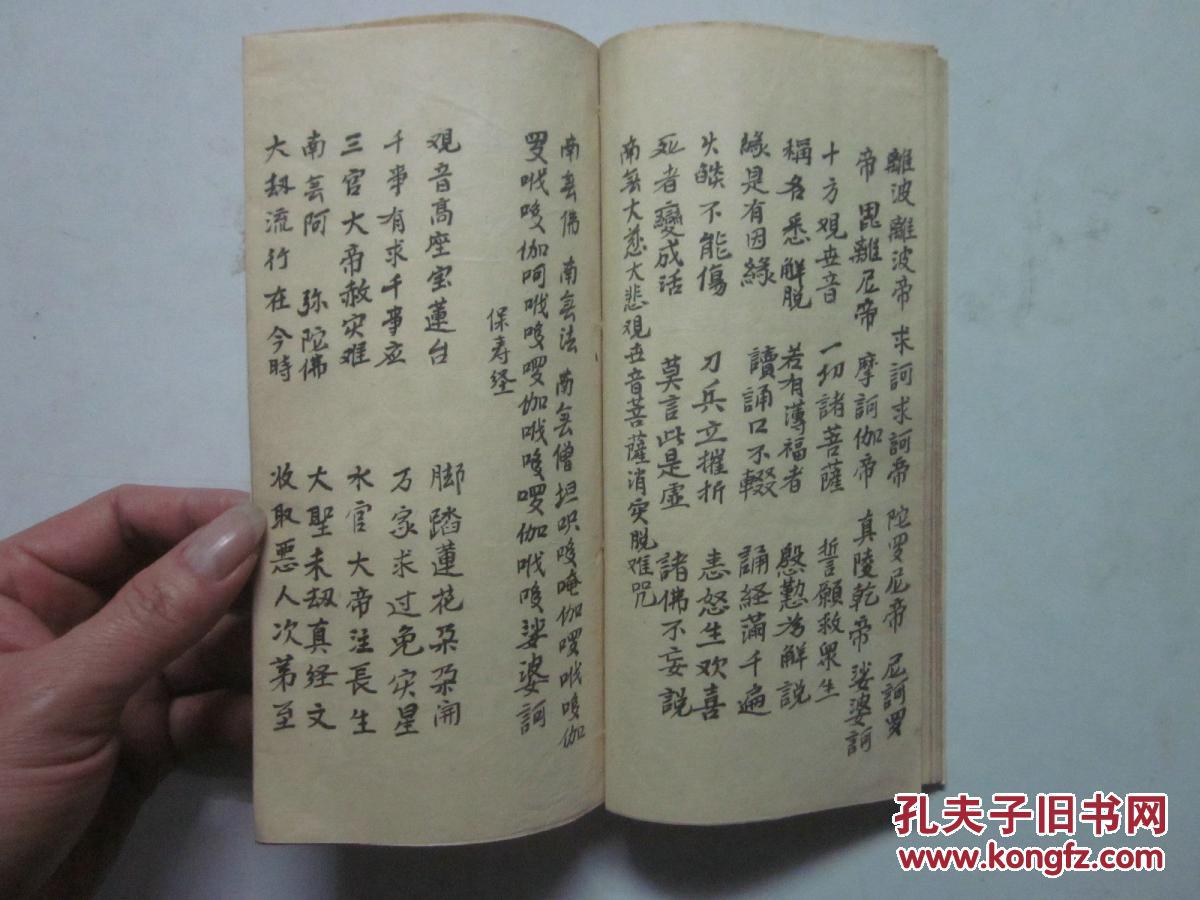 離波離波帝 求訶求訶帝 陀罗尼帝 尼訶罗
帝 毘離尼帝 摩訶伽帝 真陵乾帝 娑婆訶
十方观世音 一切諸菩薩 誓願救衆生
稱名悉解脱 若有薄福者 慇懃为解説
緣是有因緣 讀誦口不輟 誦経滿千遍
火燄不能傷 刀兵立摧折 恚怒生欢喜
死者變成活 莫言此是虚 諸佛不妄説
南無大慈大悲观世音菩薩消灾脱难咒
南無佛 南無法 南無僧 怛呮唆唵伽啰哦唆伽
罗哦唆伽呵哦唆啰伽哦唆啰伽哦唆娑婆訶
保寿经
观音高座宝蓮台 脚踏蓮花朶朶開
千事有求千事应 万家求过免灾星
三官大帝赦灾难 水官大帝注長生
南無阿 弥陀佛 大聖末刼真经文
大刼流行在今時 收取悪人次第至
孔夫子旧书网
www.kongfz.com